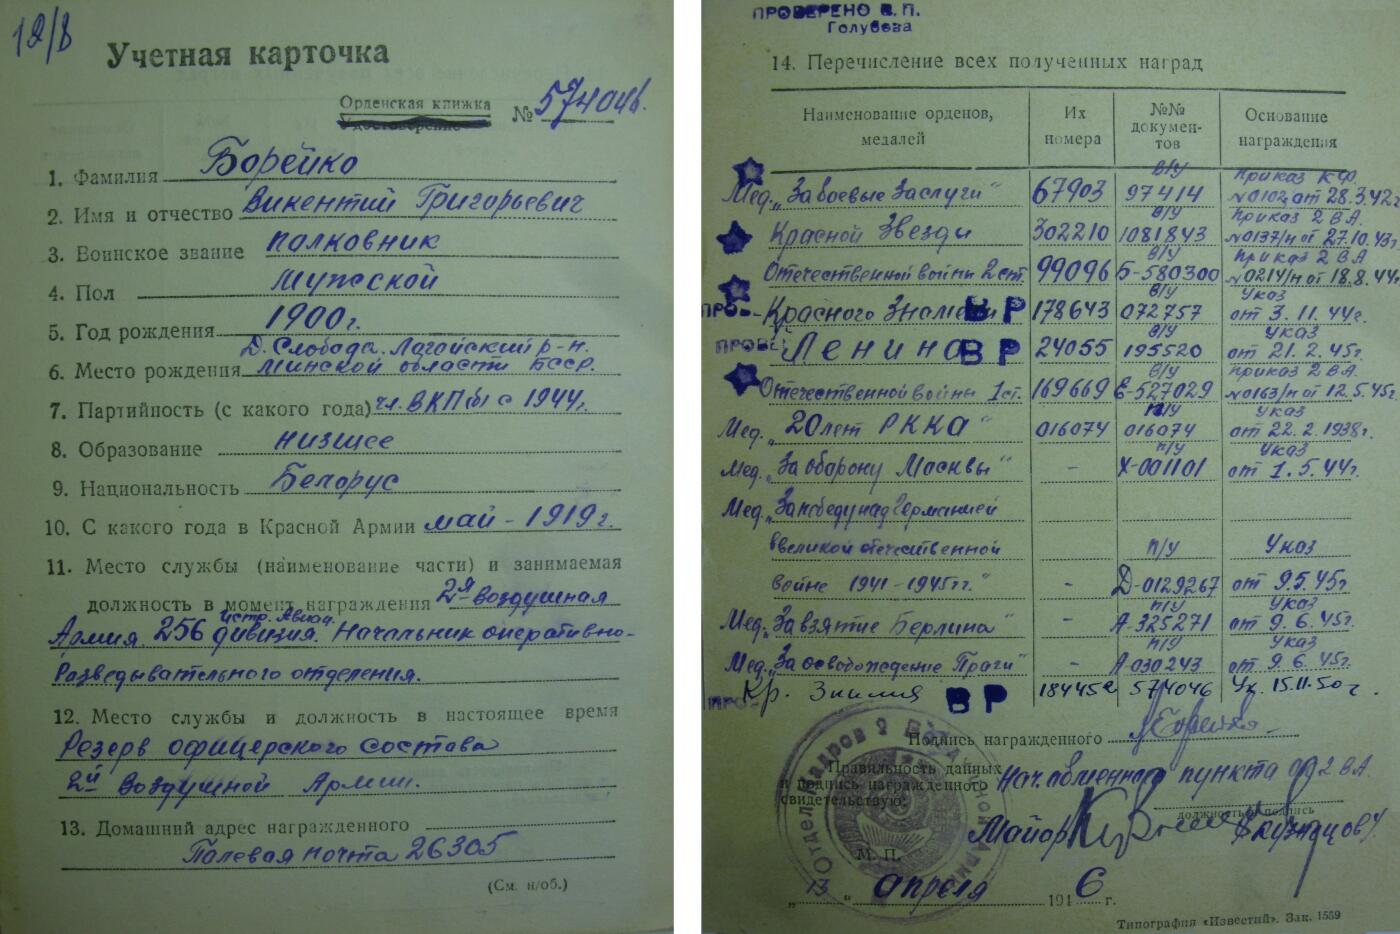 12/8
Учетная карточка
Орденская книжка
Удостоверение
№ 574046.
1. Фамилия Борейко
2. Имя и отчество Викентий Григорьевич
3. Воинское звание полковник
4. Пол Мужской
5. Год рождения 1900 г.
Д. Слобода. Логойский р-н.
6. Место рождения Минской области БССР.
7. Партийность (с какого года) чл. ВКП(б) с 1944г.
8. Образование низшее
9. Национальность Белорус
10. С какого года в Красной Армии май - 1919 г.
11. Место службы (наименование части) и занимаемая
должность в момент награждения 2я Воздушная
Армия. 256 истр. Авиац. дивизия. Начальник оперативно-
Разведывательного отделения.
12. Место службы и должность в настоящее время
Резерв офицерского состава
2й Воздушной Армии.
13. Домашний адрес награжденного
Полевая почта 26305
(См. н/об.)
ПРОВЕРЕНО В. П.
Голубева
14. Перечисление всех полученных наград
Наименование орденов, медалей Их номера №№ документов Основание награждения
Мед. „За боевые Заслуги" 67903 в/у 97414 Приказ К.Ф. №0102 от 28.3.42г
Красной Звезды 302210 в/у 1081843 Приказ 2 ВА. №0137/н от 27.10.43г
Отечественной войны 2 ст. 99096 в/у Б-580300 Приказ 2 ВА №0214/н от 18.8.44г
ПРОВ- Красного Знамени ВР 178643 в/у 072757 Указ от 3.11.44г.
ПРОВЕ Ленина ВР 24055 в/у 195520 Указ от 21.2.45г.
Отечественной войны 1 ст. 169669 в/у Е-527029 Приказ 2 ВА. №0163/н от 12.5.45г.
Мед. „20 лет РККА" 016074 п/у 016074 Указ от 22.2.1938г.
Мед. „За оборону Москвы" - п/у Х-001101 Указ от 1.5.44г.
Мед. „За победу над Германией
в Великой отечественной п/у Указ
войне 1941-1945гг." - Д-0129267 от 9.5.45г
Мед. „За взятие Берлина" - п/у А-325271 Указ от 9.6.45г.
Мед. „За освобождение Праги" - п/у А-030243 Указ от 9.6.45г.
ПРОВ Кр. Знамя ВР 184452 574046 Ук. 15.11.50 г.
Подпись награжденного Борейко
Правильность данных и подпись награжденного свидетельствую: Нач. обменного пункта 2 ВА.
должность и подпись
Майор Кузнецов
М. П.
„13" апреля 1946 г.
Типография «Известий». Зак. 1559